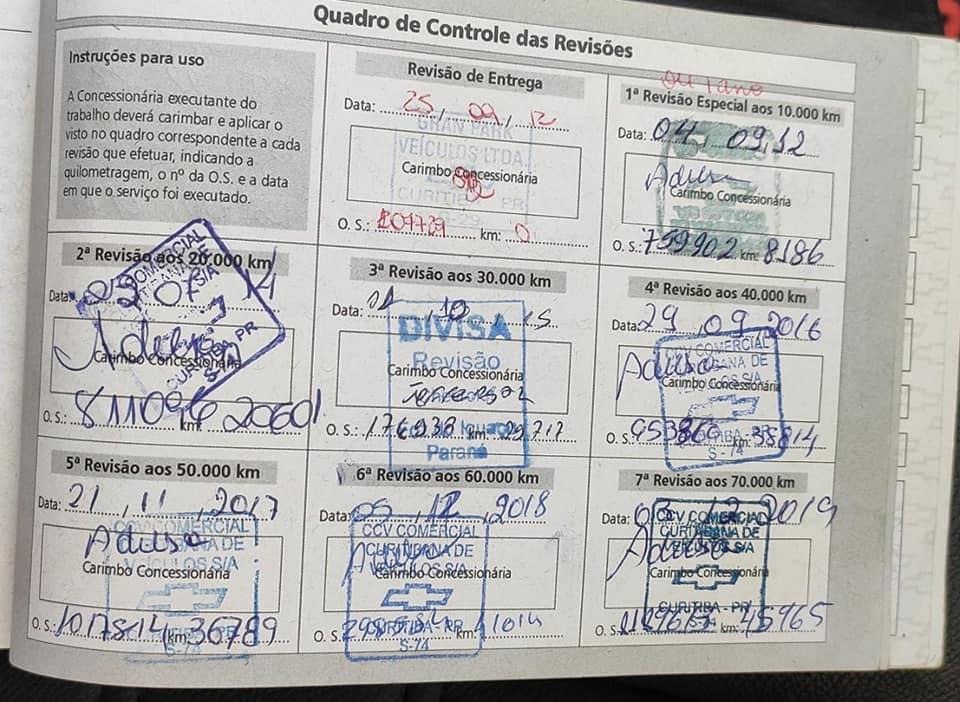 Quadro de Controle das Revisões
Instruções para uso
A Concessionária executante do
trabalho deverá carimbar e aplicar o
visto no quadro correspondente a cada
revisão que efetuar, indicando a
quilometragem, o nº da O.S. e a data
em que o serviço foi executado.
Revisão de Entrega
Data: 25, 09, 12
GRAN PARK
VEÍCULOS LTDA
Carimbo Concessionária
CURITIBA PR
O. S.: km: 0
ou 1 ano
1ª Revisão Especial aos 10.000 km
Data: 04, 09, 12
Carimbo Concessionária
O. S.: 759902 km: 8186
2ª Revisão aos 20.000 km
Data: 07 14
COMERCIAL
Carimbo Concessionária
CURITIBA PR
O. S.: km: 20601
3ª Revisão aos 30.000 km
Data: 10 15
DIVISA
Revisão
Carimbo Concessionária
Paraná
O. S.: 176938 km: 29717
4ª Revisão aos 40.000 km
Data: 29, 09, 2016
CCV COMERCIAL
Carimbo Concessionária
O. S. km: 35814
S-74
5ª Revisão aos 50.000 km
Data: 21, 11, 2017
CCV COMERCIAL
VEÍCULOS S/A
Carimbo Concessionária
O. S.: 1017514 km: 36789
S-74
6ª Revisão aos 60.000 km
Data: 05, 12, 2018
CCV COMERCIAL
CURITIBANA DE
VEÍCULOS S/A
Carimbo Concessionária
CURITIBA - PR
O. S.: km: 41014
S-74
7ª Revisão aos 70.000 km
Data: 03, 12, 2019
CCV COMERCIAL
CURITIBANA DE
Carimbo Concessionária
CURITIBA - PR
O. S. km: 45965
S-74